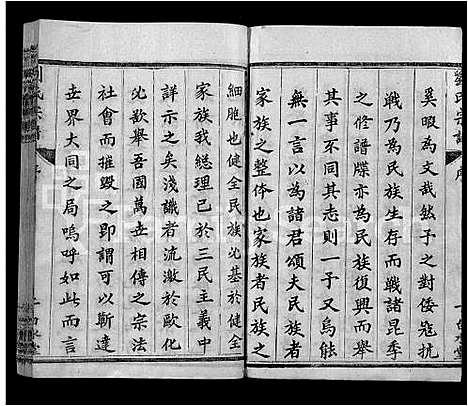 劉氏宗譜
奚暇為文哉然予之對倭寇抗
戰乃為民族生存而戰諸昆季
之修譜牒亦為民族復興而舉
其事異其志則一予又烏能
無一言以為諸君頌夫民族以
家族之整体也家族者民族之
細胞也健全民族必基於健全
家族我總理已於三民主義中
詳示之矣淺識者流激於歐化
必欲舉吾國萬世相傳之宗法
社會而摧毀之即謂可以躋達
世界大同之局嗚呼如此而言